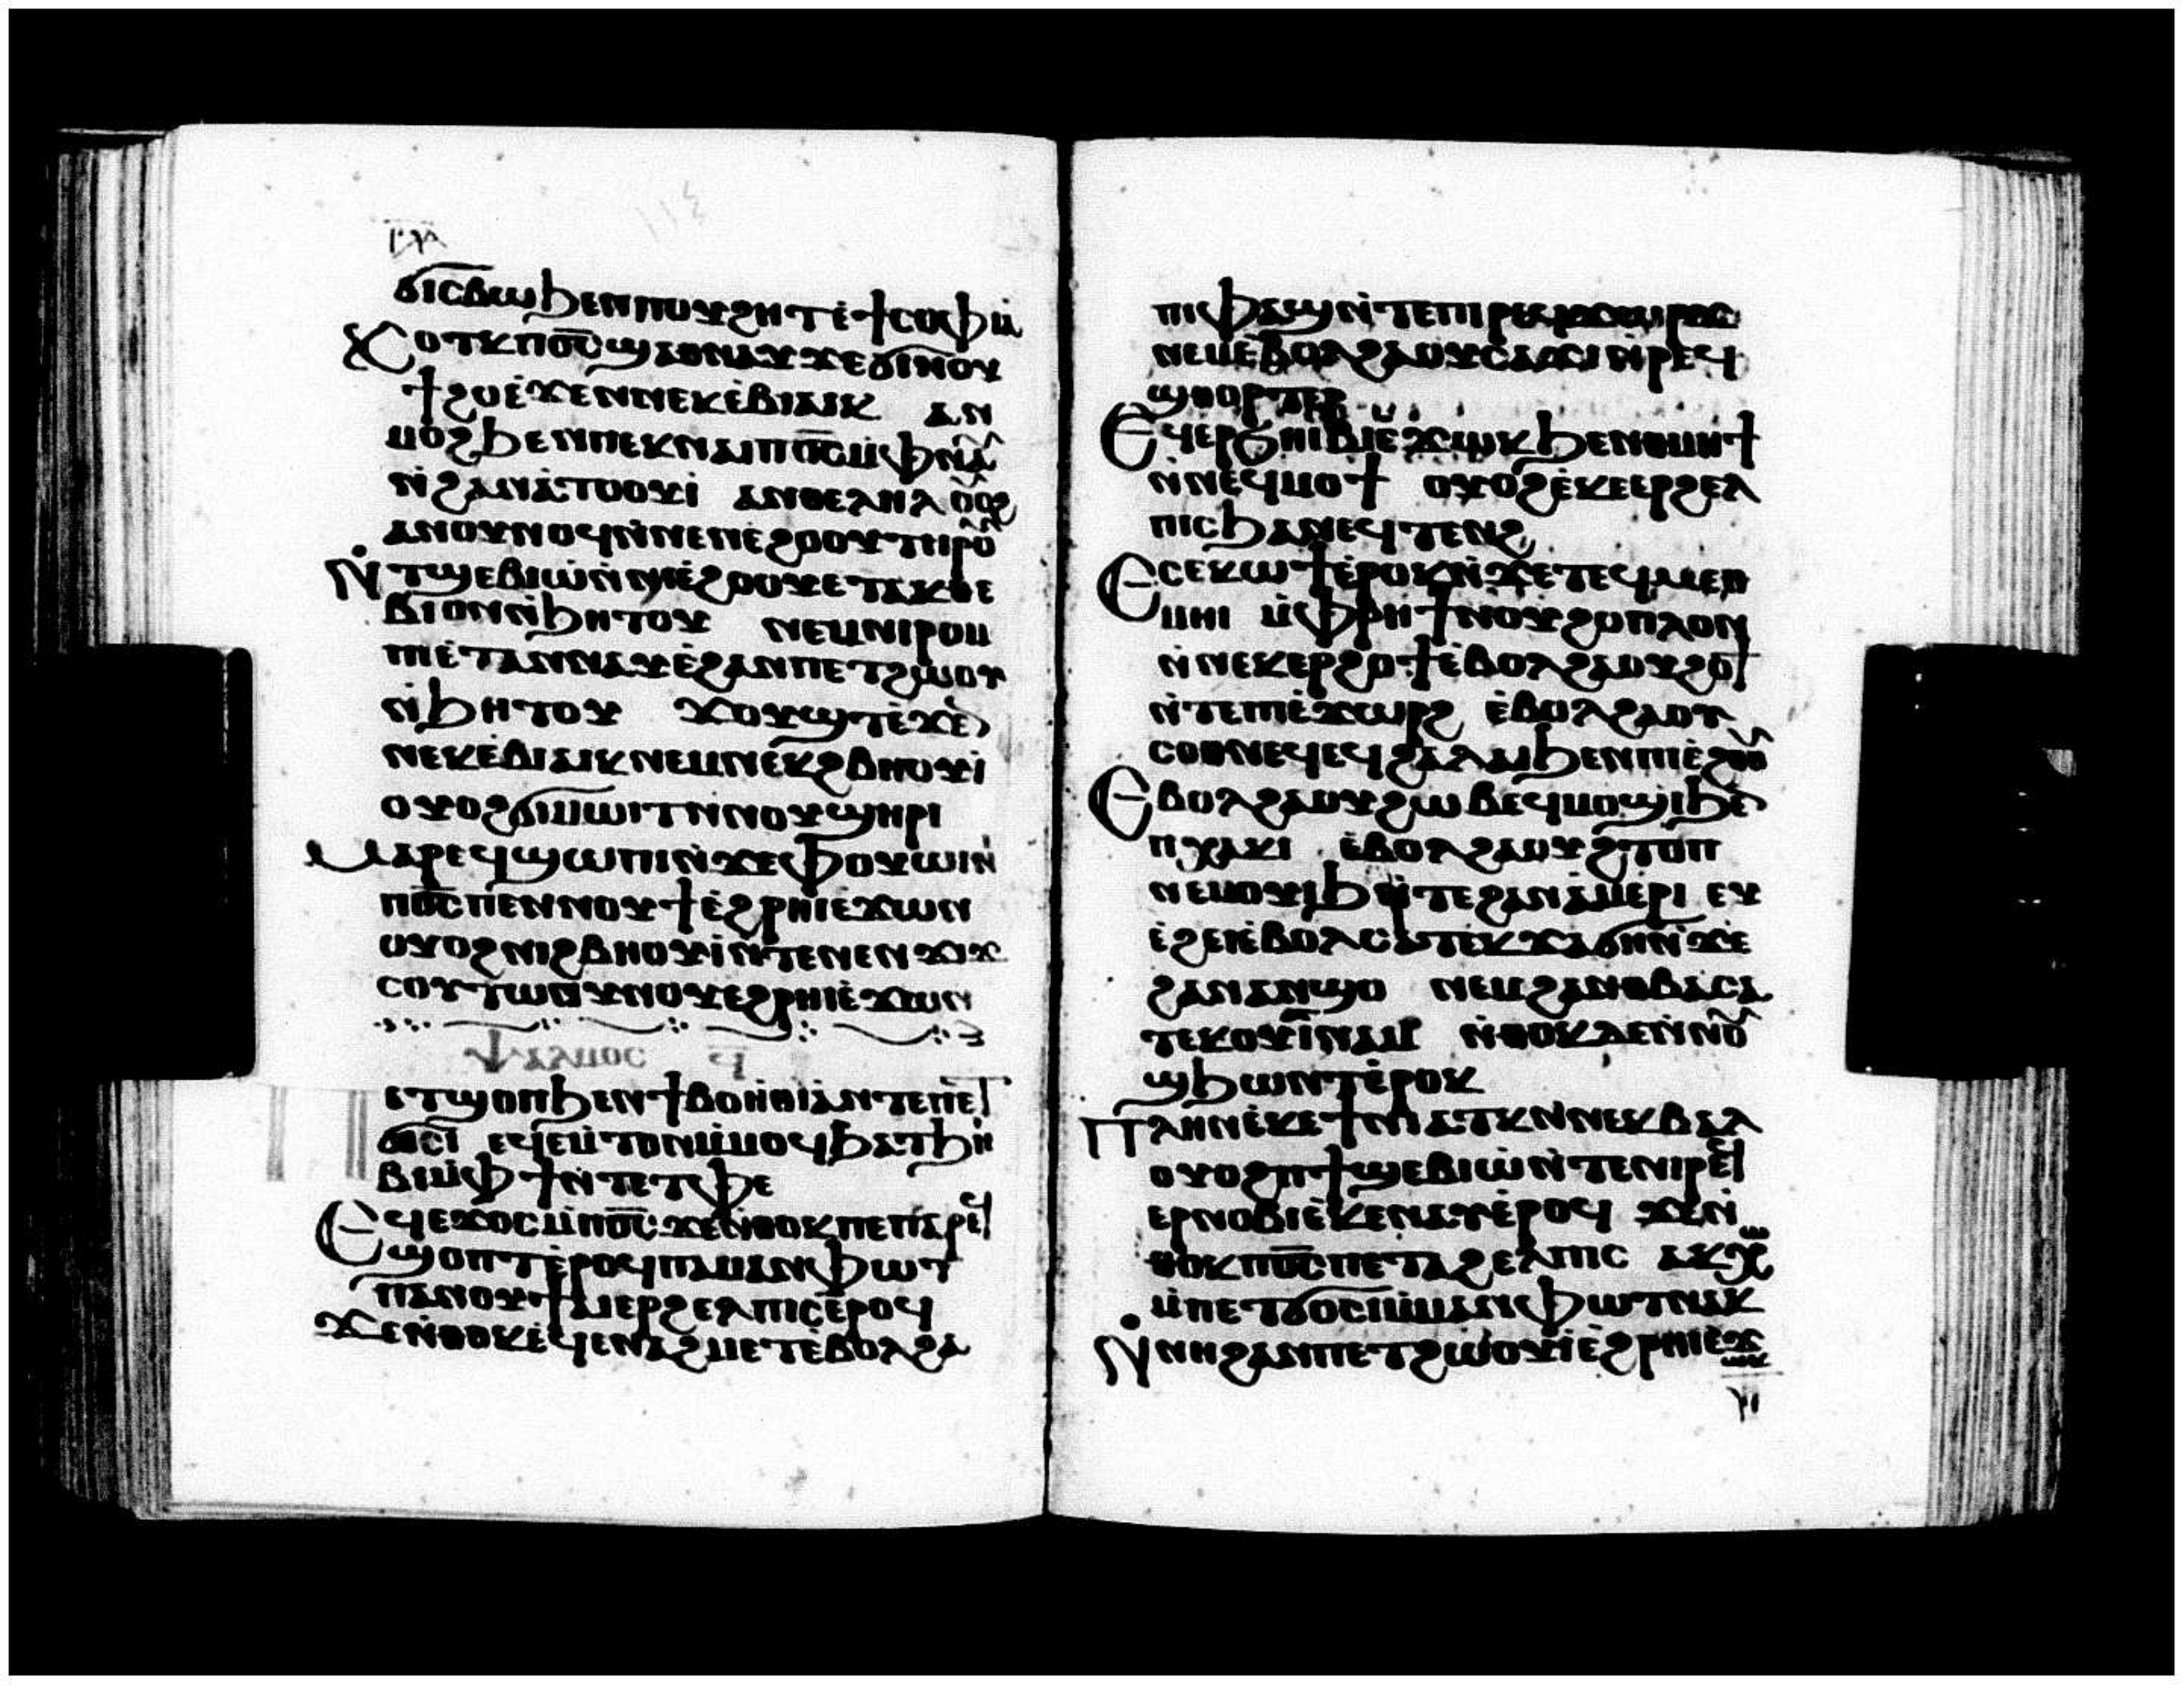 ϭⲓⲥⲃⲱϧⲉⲛⲡⲟⲩϩⲏⲧⲉ̀ϯⲥⲟⲫⲓⲁ̀
ⲭⲟⲧⲕⲡⲟ̅ⲥ̅ϣⲁⲑⲛⲁⲩϫⲉϭⲓⲛⲟⲩ
ϯϩⲟⲉ̀ϫⲉⲛⲛⲉⲕⲉ̀ⲃⲓⲁⲓⲕ ⲁⲛ
ⲙⲟϩϧⲉⲛⲡⲉⲕⲛⲁⲓⲡⲟ̅ⲥ̅ⲙ̀ⲫⲛⲁ
ⲛ̀ϩⲁⲛⲁ̀ⲧⲟⲟⲩⲓ̀ ⲁⲛⲑⲉⲗⲏⲗ ⲟⲩⲟϩ
ⲁⲛⲟⲩⲛⲟϥⲛ̀ⲛⲉⲛⲉ̀ϩⲟⲟⲩⲧⲏⲣⲟⲩ
ⲛ̀ⲧϣⲉⲃⲓⲱ̀ⲛ̀ⲛⲓⲉ̀ϩⲟⲟⲩⲉⲧⲁⲕⲑⲉ
ⲃⲓⲟⲛⲛ̀ϧⲏⲧⲟⲩ ⲛⲉⲙⲛⲓⲣⲟⲙ
ⲡⲓⲉ̀ⲧⲁⲛⲛⲁⲩⲉ̀ϩⲁⲛⲡⲉⲧϩⲱⲟⲩ
ⲛ̀ϧⲏⲧⲟⲩ ϫⲟⲩϣⲧⲉ̀ϫⲉⲛ
ⲛⲉⲕⲉ̀ⲃⲓⲁⲓⲕⲛⲉⲙⲛⲉⲕϩⲃⲏⲟⲩⲓ̀
ⲟⲩⲟϩϭⲓⲙⲱⲓⲧⲛ̀ⲛⲟⲩϣⲏⲣⲓ
ⲙⲁⲣⲉϥϣⲱⲡⲓⲛ̀ϫⲉⲫⲟⲩⲱⲓⲛⲓ̀
ⲡⲟ̅ⲥ̅ⲡⲉⲛⲛⲟⲩϯⲉ̀ϩⲣⲏⲓⲉ̀ϫⲱⲛ
ⲟⲩⲟϩⲛⲓϩⲃⲏⲟⲩⲓ̀ⲛ̀ⲧⲉⲛⲉⲛϫⲓϫ
ⲥⲟⲩⲧⲱⲛⲟⲩⲛⲟⲩⲉϩⲣⲏⲓⲉ̀ϫⲱⲛ
ⲯⲁⲗⲙⲟⲥ ϥ̅
ⲉⲧϣⲟⲡϧⲉⲛϯⲃⲟⲏⲑⲓⲁ̀ⲛ̀ⲧⲉⲡⲉⲧ
ϭⲟⲥⲓ ⲉϥⲉⲙ̀ⲧⲟⲛⲙ̀ⲙⲟϥϧⲁⲧϧⲏ
ⲃⲓⲙ̀ⲫϯⲛ̀ⲧⲉⲧⲫⲉ
ⲉϥⲉϫⲟⲥⲙ̀ⲡⲟ̅ⲥ̅ϫⲉⲛ̀ⲑⲟⲕⲡⲉⲡⲁⲣⲉϥ
ϣⲟⲡⲧⲉ̀ⲣⲟϥⲡⲁⲙⲁⲛⲫⲱⲧ
ⲡⲁⲛⲟⲩϯⲁⲓⲉⲣϩⲉⲗⲡⲓⲥⲉ̀ⲣⲟϥ
ϫⲉⲛ̀ⲑⲟⲕⲉ̀ϥⲉⲛⲁϩⲙⲉⲧⲉ̀ⲃⲟⲗϩⲁ
ⲡⲓⲫⲁϣⲛ̀ⲧⲉⲡⲓⲣⲉϥ
ⲛⲉⲙⲉ̀ⲃⲟⲗϩⲁⲟⲩⲥⲁϫⲓⲛ̀ⲣⲉϥ
ϣⲑⲟⲣⲧⲉⲣ
ⲉϥⲉⲣϧⲏⲓⲃⲓⲉ̀ϫⲱⲕϧⲉⲛⲑⲙⲏϯ
ⲛ̀ⲛⲉϥⲙⲟϯ ⲟⲩⲟϩⲉ̀ⲕⲉⲉⲣϩⲉⲗ
ⲡⲓⲥϧⲁⲛⲉϥⲧⲉⲛϩ
ⲉⲥⲉⲕⲱϯⲉ̀ⲣⲟⲕⲛ̀ϫⲉⲧⲉϥⲙⲉⲑ
ⲙⲏⲓ ⲙ̀ⲫⲣⲏϯⲛⲟⲩϩⲟⲡⲗⲟⲛ
ⲛ̀ⲛⲉⲕⲉⲣϩⲟϯⲉ̀ⲃⲟⲗϩⲁⲟⲩϩⲟϯ
ⲛ̀ⲧⲉⲡⲓⲉ̀ϫⲱⲣϩ ⲉ̀ⲃⲟⲗϩⲁⲟⲩ
ⲥⲟⲑⲛⲉϥⲉϥϩⲁⲗⲁⲓϧⲉⲛⲡⲓⲉ̀ϩⲟⲟⲩ
ⲉⲃⲟⲗϩⲁⲟⲩϩⲱⲃⲉϥⲙⲟϣⲓϧⲉⲛ
ⲡⲭⲁⲕⲓ ⲉ̀ⲃⲟⲗϩⲁⲟⲩϩⲧⲟⲡ
ⲛⲉⲙⲟⲩⲓϧⲛ̀ⲧⲉϩⲁⲛⲁ̀ⲙⲉⲣⲓ ⲉⲩ
ⲉ̀ϩⲉⲓⲉ̀ⲃⲟⲗⲥⲁⲧⲉⲕϫⲁϭⲏⲛ̀ϫⲉ
ϩⲁⲛⲁⲛϣⲟ ⲛⲉⲙϩⲁⲛⲑⲃⲁⲥⲁ
ⲧⲉⲕⲟⲩⲓ̀ⲛⲁⲙ ⲛ̀ⲑⲟⲕⲇⲉⲛ̀ⲛⲟⲩ
ϣϧⲱⲛⲧⲉ̀ⲣⲟⲕ
ⲡⲗⲏⲛⲉ̀ⲕⲉϯⲛⲓⲁⲧⲕⲛ̀ⲛⲉⲕⲃⲁⲗ
ⲟⲩⲟϩⲡϯϣⲉⲃⲓⲱ̀ⲛ̀ⲧⲉⲛⲓⲣⲉϥ
ⲉⲣⲛⲟⲃⲓⲉ̀ⲕⲉⲛⲁⲩⲉ̀ⲣⲟϥ ϫⲉⲛ̀
ⲑⲟⲕⲡⲟ̅ⲥ̅ⲡⲉⲧⲁϩⲉⲗⲡⲓⲥ ⲁⲕⲭⲱ
ⲙ̀ⲡⲉⲧϭⲟⲥⲓⲙ̀ⲙⲁⲛⲫⲱⲧⲛⲁⲕ
ⲛ̀ⲛⲏϩⲁⲛⲡⲉⲧϩⲱⲟⲩⲓ̀ⲉ̀ϩⲣⲏⲓⲉ̀ϫ
ⲱⲕ